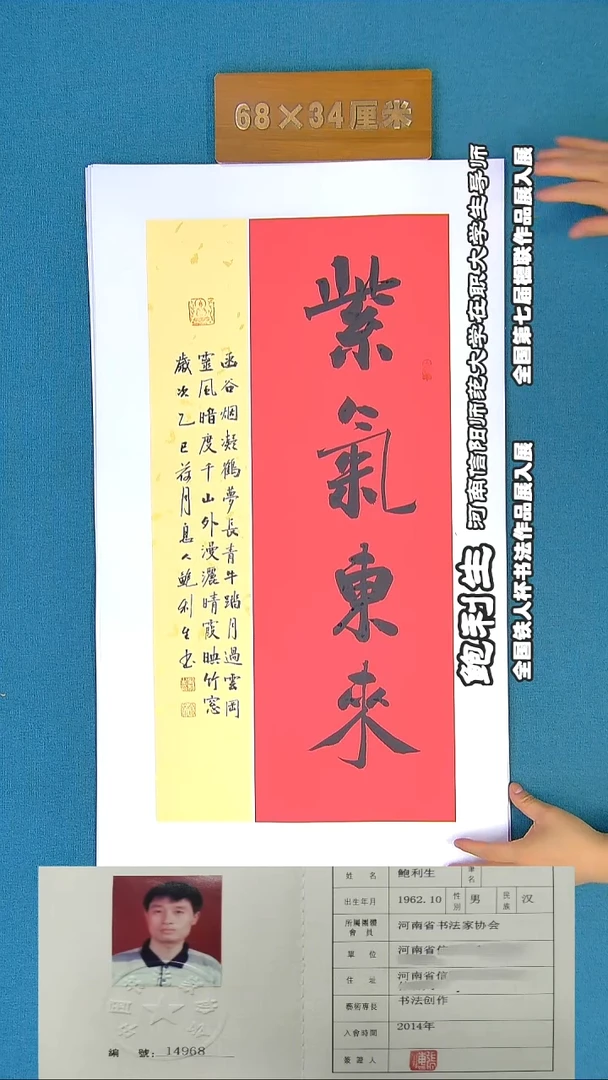 68×34厘米
紫氣東來
函谷烟凝鶴夢長青牛踏月過雲岡
靈風暗度千山外漫灑晴霞映竹窓
歲次乙巳荷月息人鮑利生书
鲍利生 河南信阳师范大学在职大学生导师
全国铁人杯书法作品展入展 全国第七届楹联作品展入展
編 號：14968
姓 名 鲍利生 筆名
出生年月 1962.10 性別 男 民族 汉
所屬團體會員 河南省书法家协会
單 位 河南省信
住 址 河南省信
藝術專長 书法创作
入會時間 2014年
簽證人